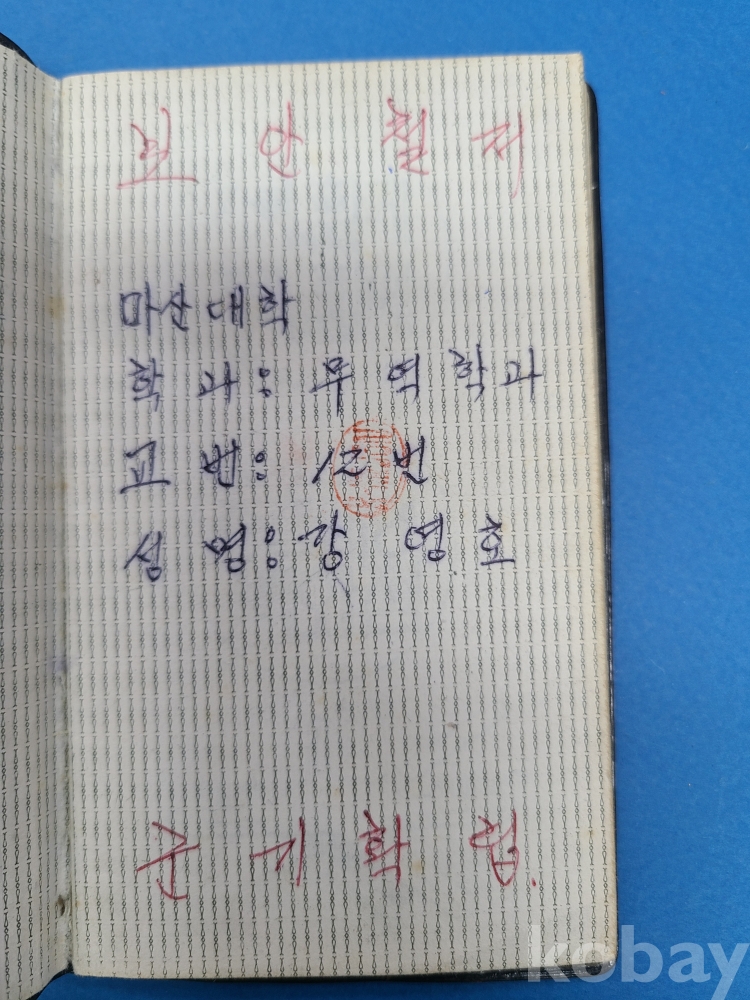 보 안 철 저
마산대학
학 과: 무 역 학 과
교 번: 12 번
성 명: 강 영 호
군 기 확 립.
kobay